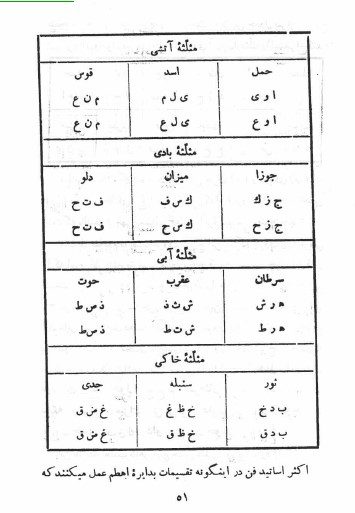 مثلثهٔ آتشی
حمل اسد قوس
ا و ی ی ل م م ن ع
ا و ع ی ل ع م ن ع
مثلثهٔ بادی
جوزا میزان دلو
ج ز ك ك س ف ف ت ح
ج ز ح ك س ح ف ت ح
مثلثهٔ آبی
سرطان عقرب حوت
ه ر ش ش ث ذ ذ ص ط
ه ر ط ش ت ط ذ ص ط
مثلثهٔ خاکی
ثور سنبله جدی
ب د خ خ ظ غ غ ض ق
ب د ق خ ظ ق غ ض ق
اکثر اساتید فن در اینگونه تقسیمات بدایرهٔ اهطم عمل میکنند که
۵۱